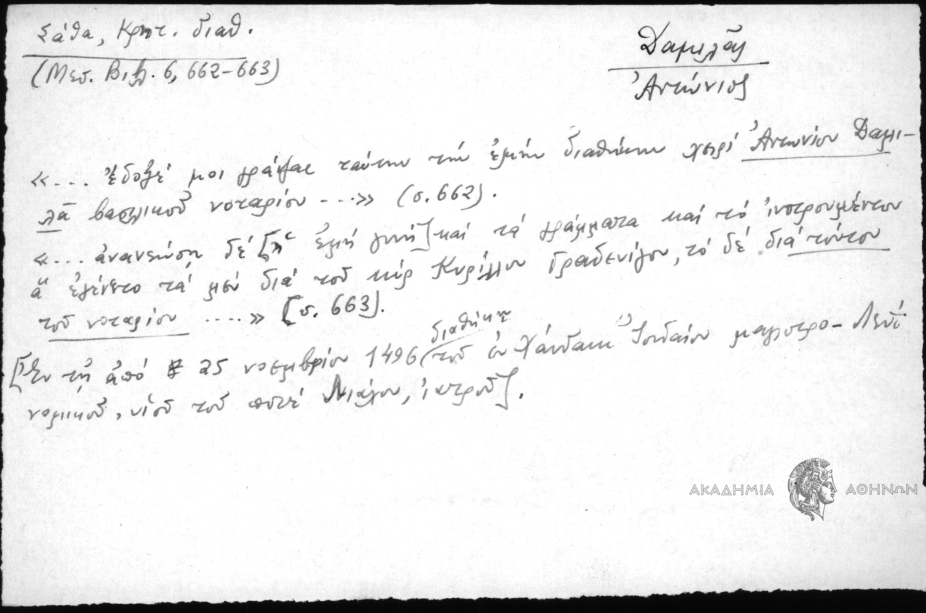 Σάθα, Κρητ. διαθ.
(Μεσ. Βιβλ. 6, 662-663)
Δαμιλᾶς
Ἀντώνιος
«... ἔδοξέ μοι γράψαι ταύτην τὴν ἐμὴν διαθήκην χειρὶ Ἀντωνίου Δαμι-
λᾶ βασιλικοῦ νοταρίου ...» (σ. 662).
«... ἀνανεώσῃ δὲ [ἡ ἐμὴ γυνὴ] καὶ τὰ γράμματα καὶ τὸ ἰνστρουμέντον
ἃ ἐγένετο τὰ μὲν διὰ τοῦ κὺρ Κυρίλλου Γραδενίγου, τὸ δὲ διὰ τούτου
τοῦ νοταρίου ....» [σ. 663].
[Ἐν τῇ ἀπὸ 25 νοεμβρίου 1496 διαθήκῃ τοῦ ἐν Χάνδακι Ἰουδαίου μαγιστρο-
νομικοῦ, υἱοῦ τοῦ ποτὲ ἰατροῦ].
ΑΚΑΔΗΜΙΑ ΑΘΗΝΩΝ